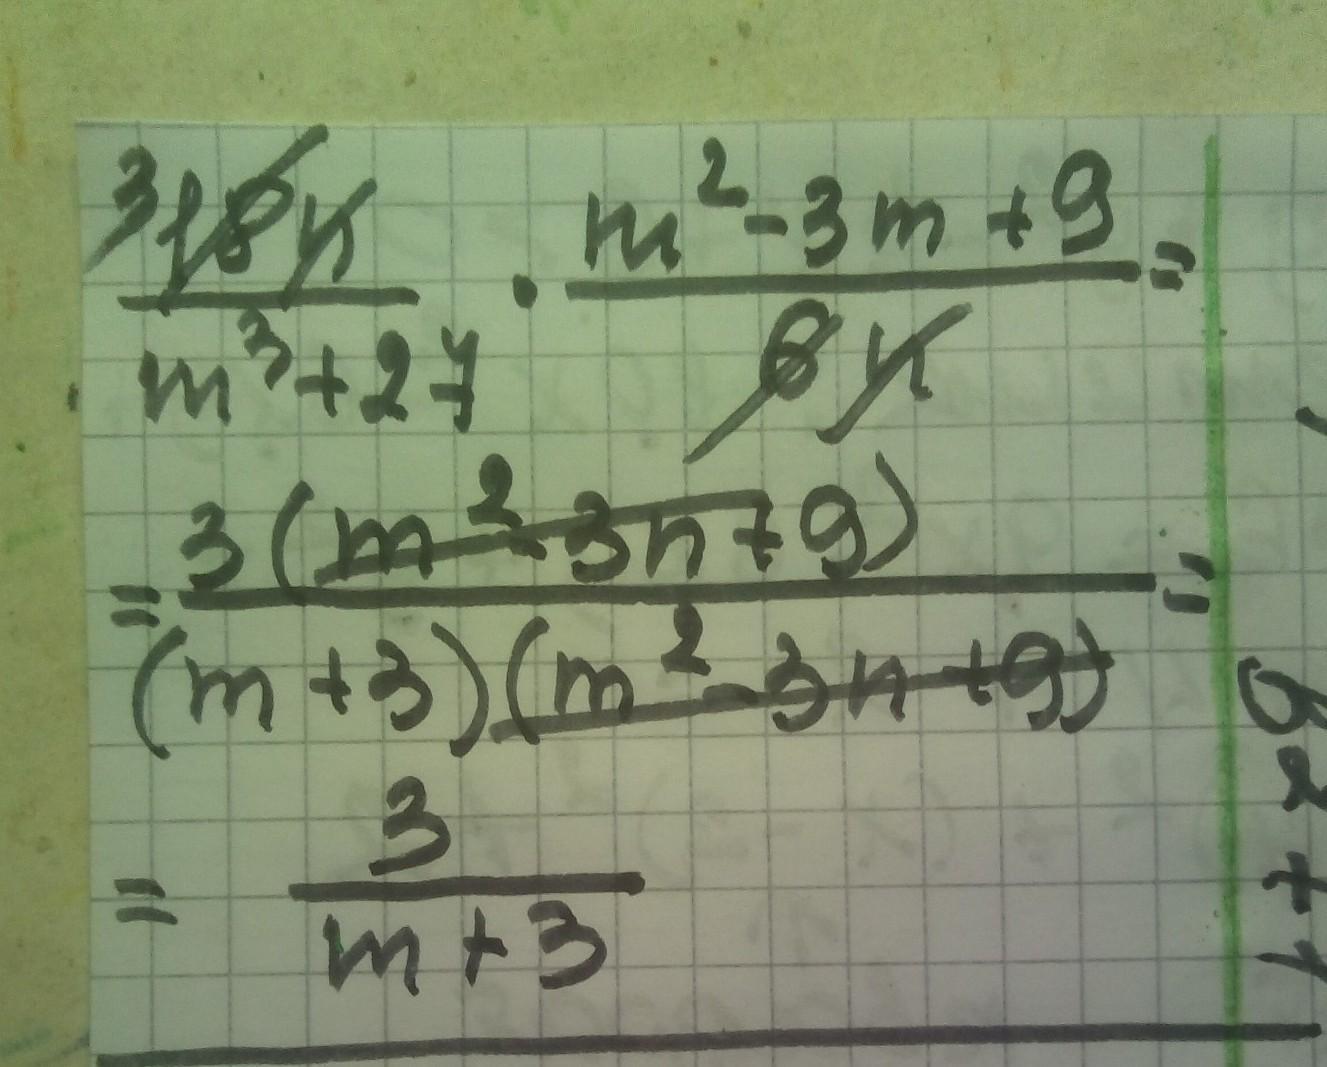 3 18n / m³+27 · m²-3m+9 / 6n =
= 3(m²-3n+9) / (m+3)(m²-3n+9) =
= 3 / m+3